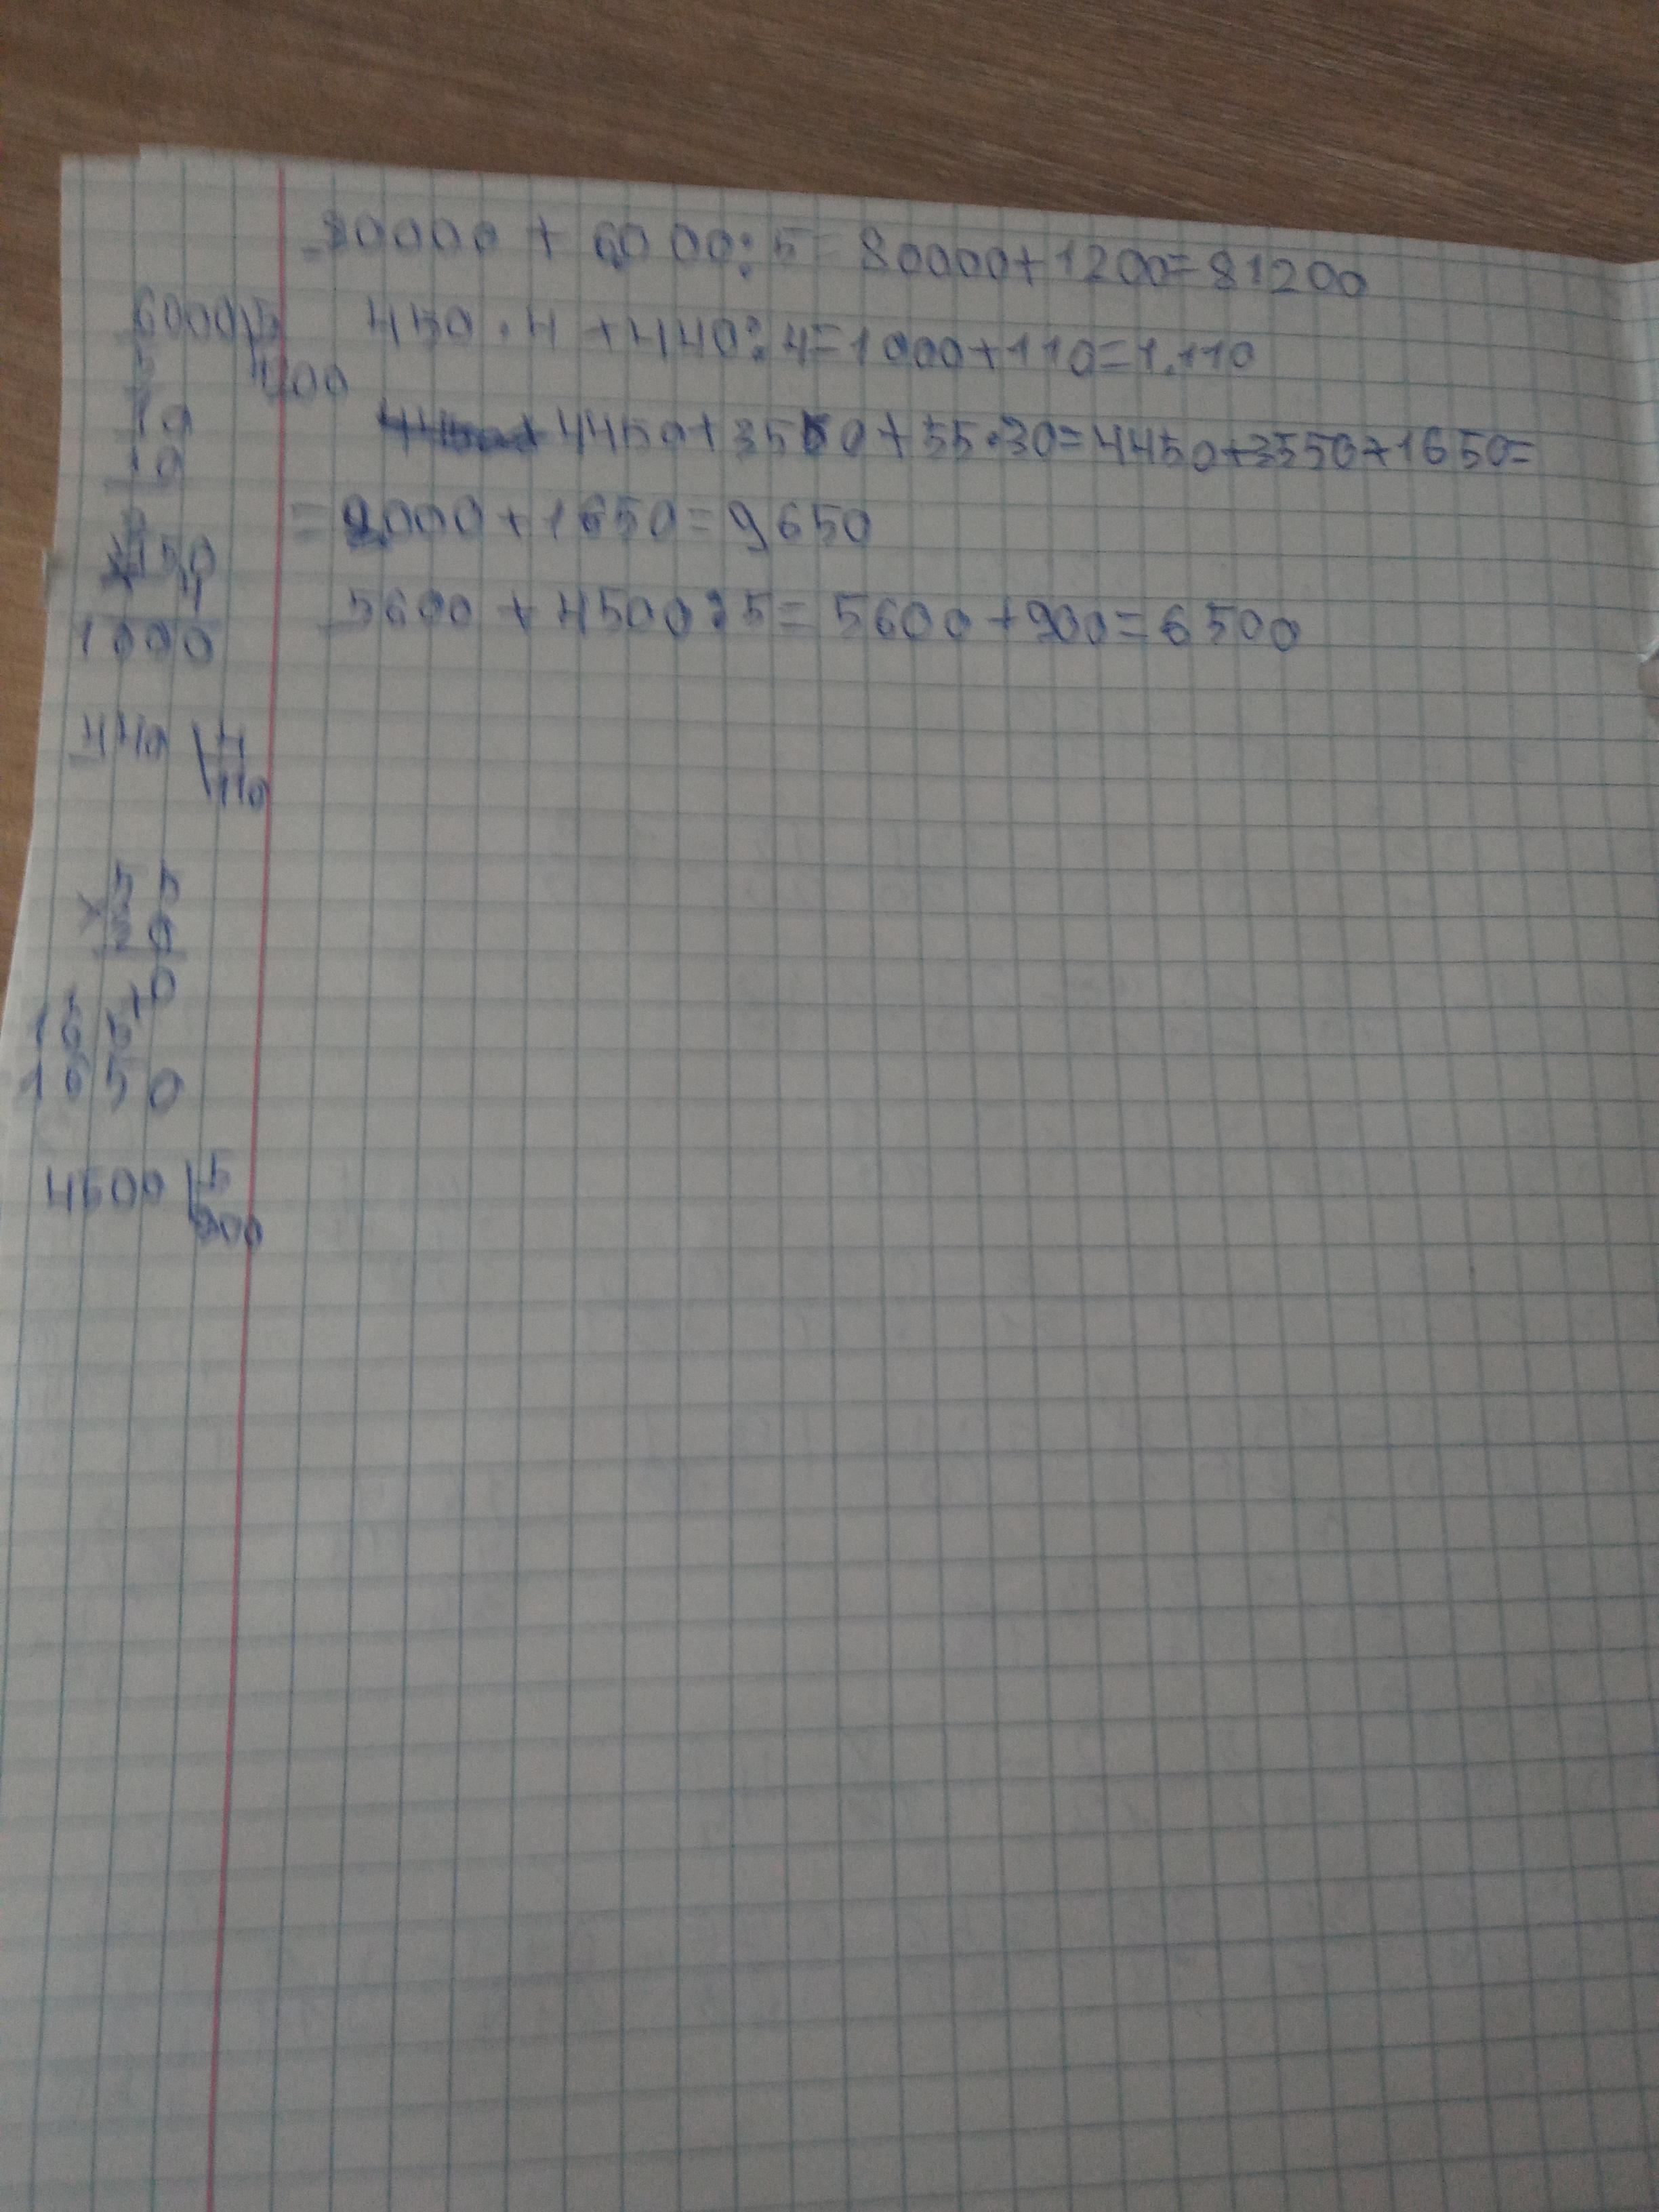 80000 + 6000 : 5 = 80000 + 1200 = 81200
450 · 4 + 440 : 4 = 1000 + 110 = 1.110
4450 + 3550 + 55 · 30 = 4450 + 3550 + 1650 =
= 8000 + 1650 = 9650
5600 + 4500 : 5 = 5600 + 900 = 6500
6000 5
5 1200
10
10
450
4
1000
440 4
110
55
× 30
0
165
1650
4500 5
900